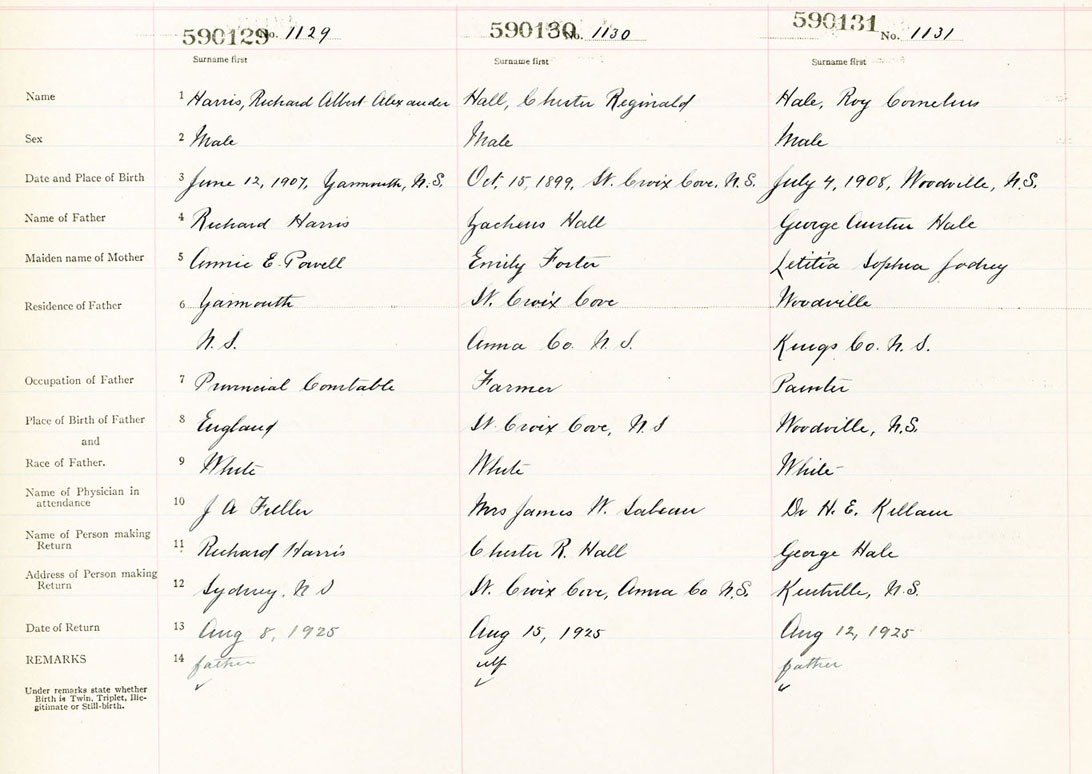 590129 No. 1129 590130 No. 1130 590131 No. 1131
Surname first Surname first Surname first
Name 1 Harris, Richard Albert Alexander Hall, Chester Reginald Hale, Roy Cornelius
Sex 2 Male Male Male
Date and Place of Birth 3 June 12, 1907, Yarmouth, N.S. Oct. 15, 1899, St. Croix Cove, N.S. July 4, 1908, Woodville, N.S.
Name of Father 4 Richard Harris Zacheus Hall George Austin Hale
Maiden name of Mother 5 Annie E. Powell Emily Foster Letitia Sophia Jodrey
Residence of Father 6 Yarmouth St. Croix Cove Woodville
N.S. Anna Co. N.S. Kings Co. N.S.
Occupation of Father 7 Provincial Constable Farmer Painter
Place of Birth of Father 8 England St Croix Cove, N.S Woodville, N.S.
and
Race of Father. 9 White White White
Name of Physician in
attendance 10 J A Fuller Mrs James W. Sabean Dr H. E. Killam
Name of Person making
Return 11 Richard Harris Chester R. Hall George Hale
Address of Person making
Return 12 Sydney, N S St. Croix Cove, Anna Co N.S. Kentville, N.S.
Date of Return 13 Aug 8, 1925 Aug 15, 1925 Aug 12, 1925
REMARKS 14 father self father
Under remarks state whether
Birth is Twin, Triplet, Ille-
gitimate or Still-birth.